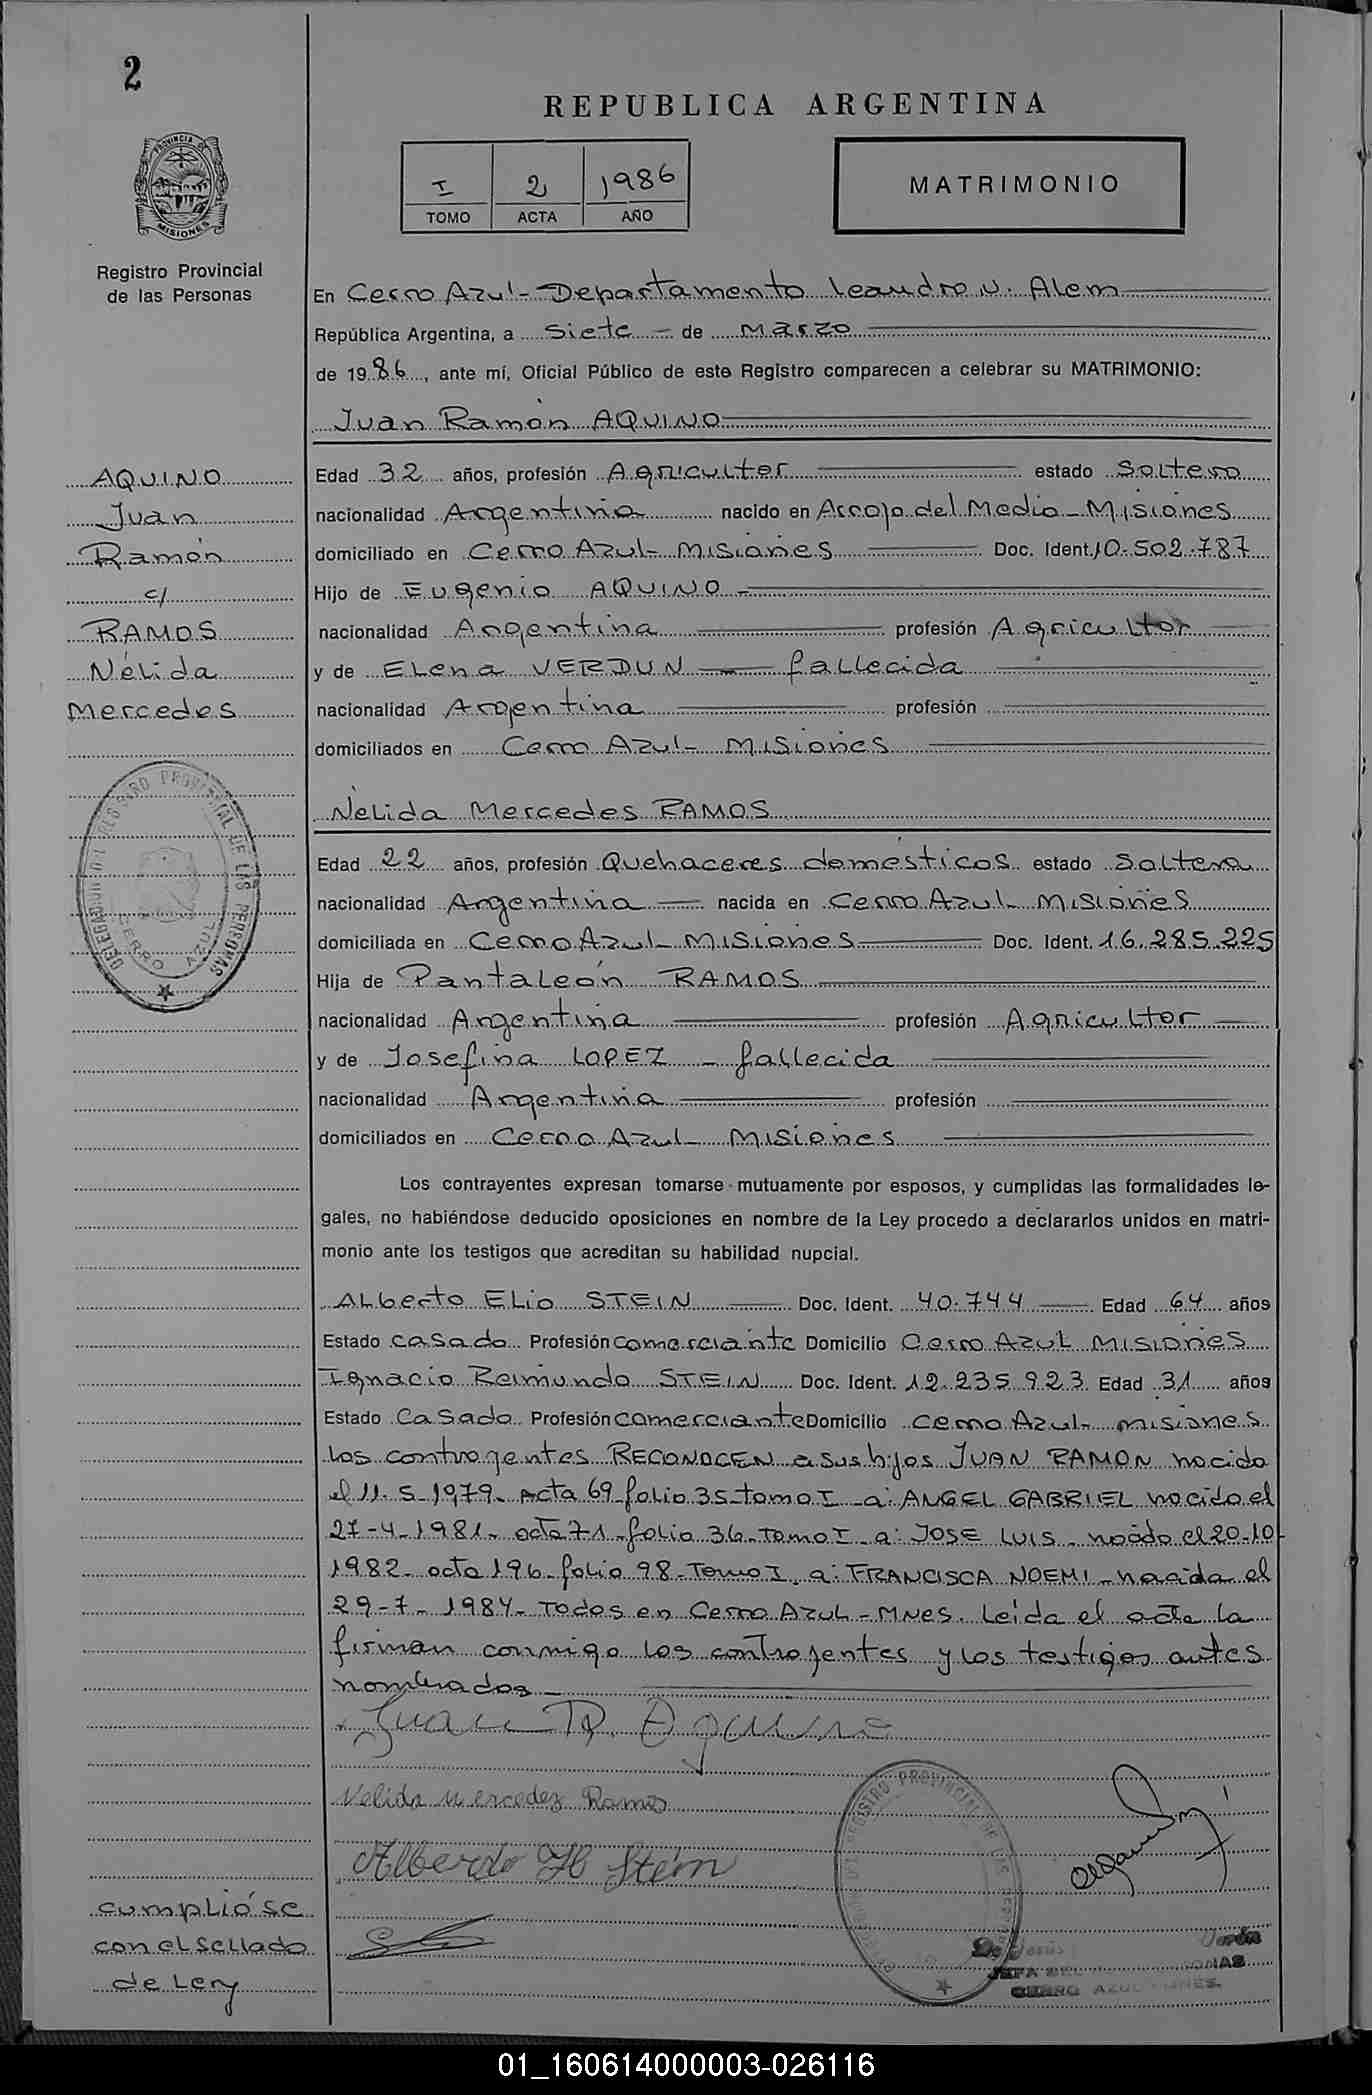 2
REPUBLICA ARGENTINA
PROVINCIA DE
MISIONES
I 2 1986
TOMO ACTA AÑO
MATRIMONIO
Registro Provincial
de las Personas
En Cerro Azul - Departamento Leandro N. Alem
República Argentina, a Siete - de Marzo
de 1986, ante mí, Oficial Público de este Registro comparecen a celebrar su MATRIMONIO:
Juan Ramón AQUINO
AQUINO
Juan
Ramón
c/
RAMOS
Nélida
Mercedes
Edad 32 años, profesión Agricultor estado Soltero
nacionalidad Argentina nacido en Arroyo del Medio - Misiones
domiciliado en Cerro Azul - Misiones Doc. Ident. 10.502.787
Hijo de Eugenio AQUINO -
nacionalidad Argentina profesión Agricultor
y de Elena VERDUN - fallecida
nacionalidad Argentina profesión
domiciliados en Cerro Azul - Misiones
Nélida Mercedes RAMOS
Edad 22 años, profesión Quehaceres domésticos estado Soltera
nacionalidad Argentina nacida en Cerro Azul - Misiones
domiciliada en Cerro Azul - Misiones Doc. Ident. 16.285.225
Hija de Pantaleón RAMOS
nacionalidad Argentina profesión Agricultor
y de Josefina LOPEZ - fallecida
nacionalidad Argentina profesión
domiciliados en Cerro Azul - Misiones
DELEGACION DEL REGISTRO PROVINCIAL DE LAS PERSONAS
CERRO AZUL
Los contrayentes expresan tomarse mutuamente por esposos, y cumplidas las formalidades le-
gales, no habiéndose deducido oposiciones en nombre de la Ley procedo a declararlos unidos en matri-
monio ante los testigos que acreditan su habilidad nupcial.
Alberto Elio STEIN Doc. Ident. 40.744 Edad 64 años
Estado casado Profesión comerciante Domicilio Cerro Azul Misiones
Ignacio Reimundo STEIN Doc. Ident. 12.235.923 Edad 31 años
Estado Casado Profesión comerciante Domicilio Cerro Azul - misiones
Los contrayentes RECONOCEN a sus hijos JUAN RAMON nacido
el 11-5-1979- Acta 69-folio 35-tomo I - a: ANGEL GABRIEL nacido el
27-4-1981- acta 71-folio 36-Tomo I - a: JOSE LUIS - nacido el 20-10-
1982- acta 196-folio 98-Tomo I - a: FRANCISCA NOEMI - nacida el
29-7-1984- Todos en Cerro Azul - Mnes. Leída el acta la
firman conmigo los contrayentes y los testigos antes
nombrados -
Juan R. Aquino
Nelida Mercedez Ramos
Alberdo H Stein
REGISTRO PROVINCIAL DE LAS
cumplióse
con el sellado
de Ley
De Jesus
JEFA DEL
CERRO AZUL MNES.
01_160614000003-026116